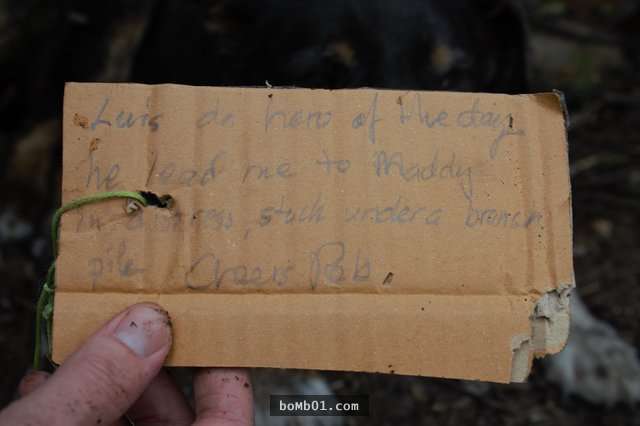 Luis da hero of the day
he lead me to Maddy
in distress, stuck under a branch
pile Cheers Rob.
boMb01.com